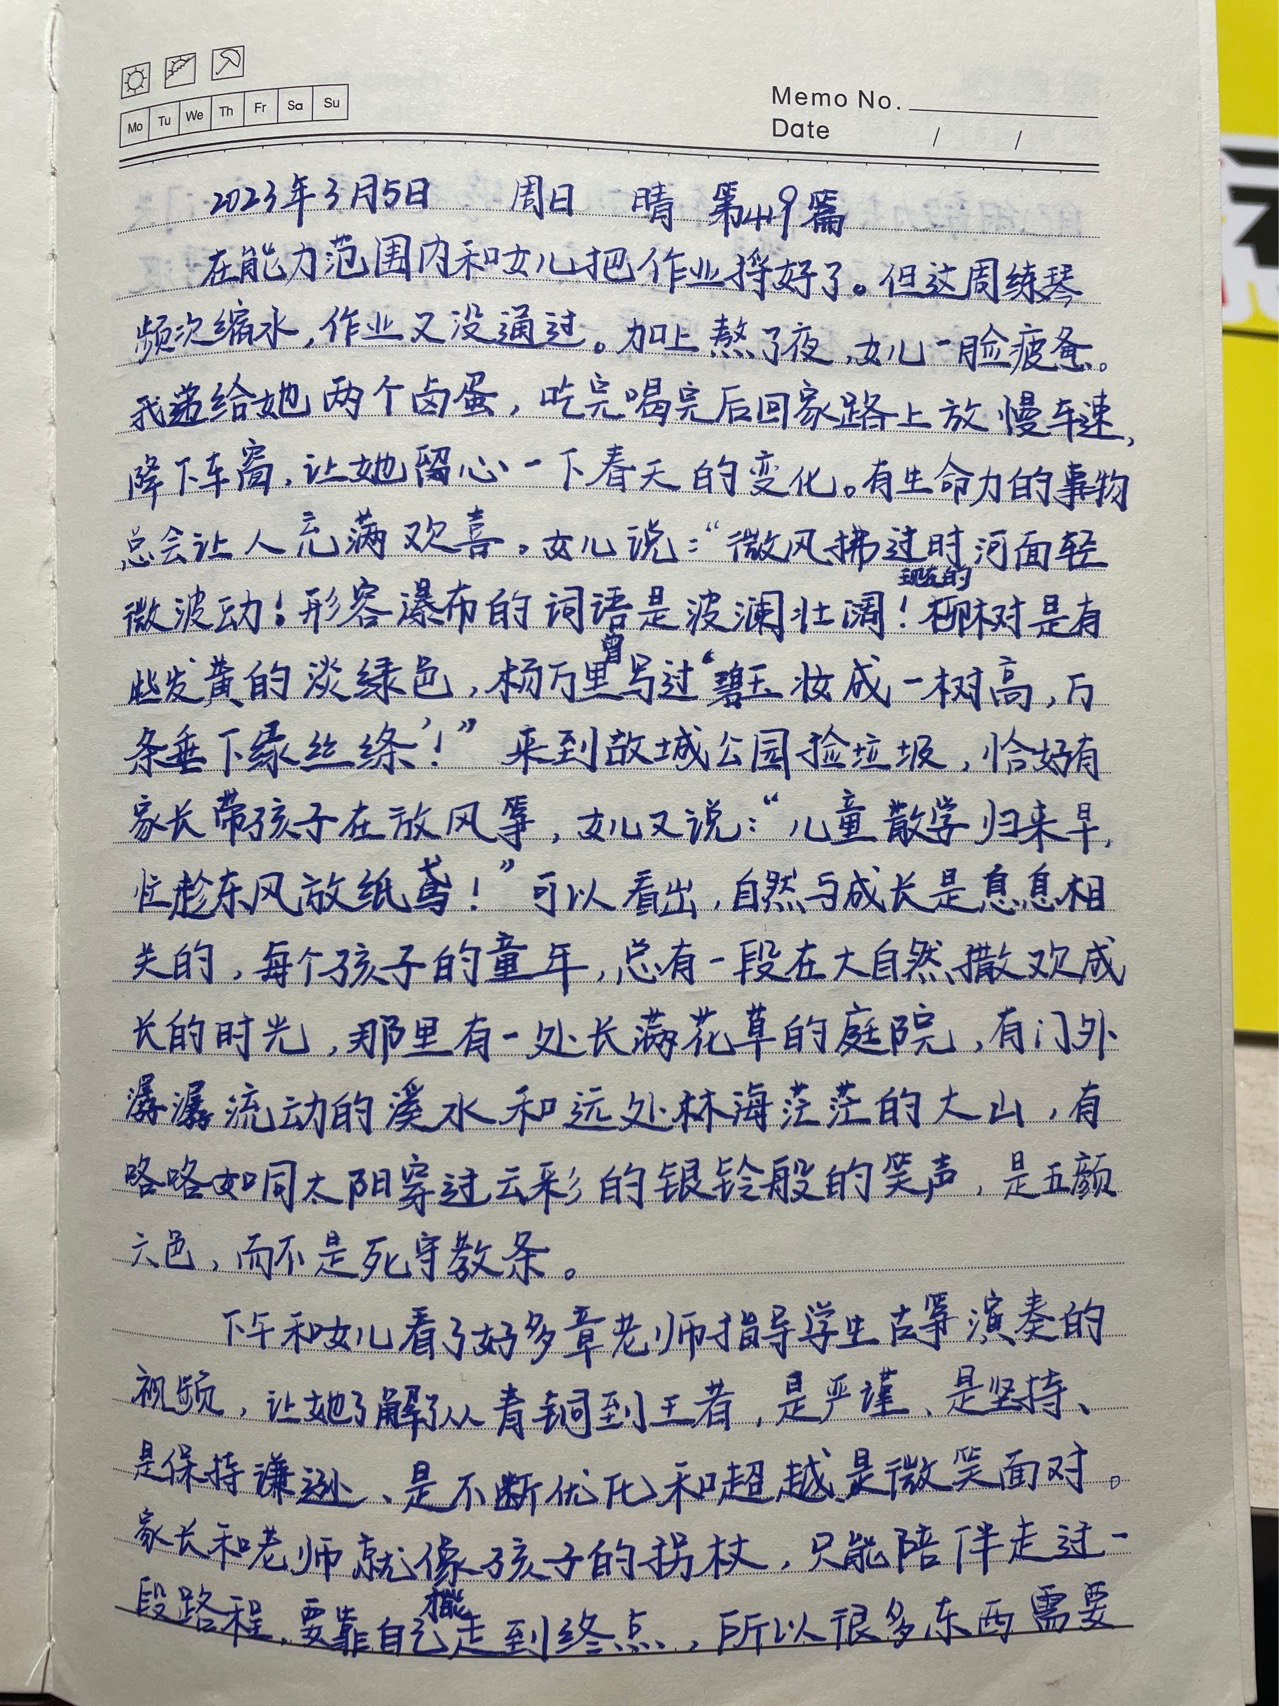 Mo Tu We Th Fr Sa Su
Memo No.
Date / /
2023年3月5日 周日 晴 第419篇
在能力范围内和女儿把作业捋好了。但这周练琴
频次缩水,作业又没通过。加上熬了夜,女儿一脸疲惫。
我递给她两个卤蛋,吃完喝完后回家路上放慢车速,
降下车窗,让她留心一下春天的变化。有生命力的事物
总会让人充满欢喜。女儿说:“微风拂过时河面轻
微波动;形容瀑布的词语是波澜壮阔!现在的柳树是有
些发黄的淡绿色,杨万里曾写过‘碧玉妆成一树高,万
条垂下绿丝绦’!”来到故城公园捡垃圾,恰好有
家长带孩子在放风筝,女儿又说:“儿童散学归来早,
忙趁东风放纸鸢!”可以看出,自然与成长是息息相
关的,每个孩子的童年,总有一段在大自然撒欢成
长的时光,那里有一处长满花草的庭院,有门外
潺潺流动的溪水和远处林海茫茫的大山,有
咯咯如同太阳穿过云彩的银铃般的笑声,是五颜
六色,而不是死守教条。
下午和女儿看了好多章老师指导学生古筝演奏的
视频,让她了解了从青铜到王者,是严谨、是坚持、
是保持谦逊、是不断优化和超越是微笑面对。
家长和老师就像孩子的拐杖,只能陪伴走过一
段路程,要靠自己才能走到终点,所以很多东西需要